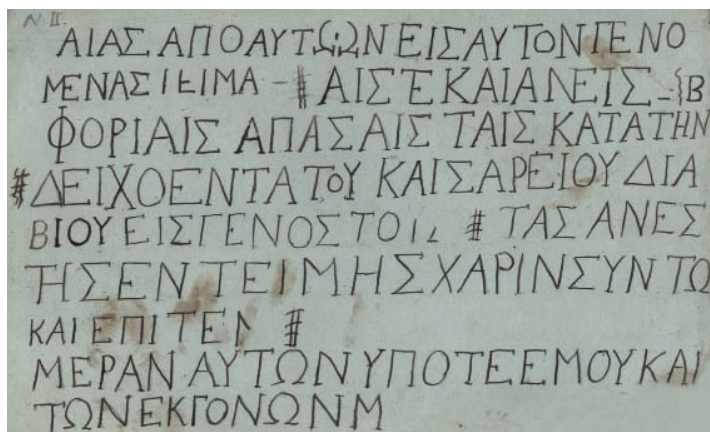 N. II.
ΑΙΑΣ ΑΠΟΑΥΤΩΝ ΕΙΣΑΥΤΟΝ ΓΕΝΟ
ΜΕΝΑΣ ΤΕΙΜΑ – # ΑΙΣΕΚΑΙΑΝΕΙΣ – Β
ΦΟΡΙΑΙΣ ΑΠΑΣΑΙΣ ΤΑΙΣ ΚΑΤΑΤΗΝ
# ΔΕΙΧΟΕΝΤΑ ΤΟΥ ΚΑΙΣΑΡΕΙΟΥ ΔΙΑ
ΒΙΟΥ ΕΙΣΓΕΝΟΣ ΤΟ # ΤΑΣ ΑΝΕΣ
ΤΗΣΕΝ ΤΕΙΜΗΣ ΧΑΡΙΝ ΣΥΝ ΤΩ
ΚΑΙ ΕΠΙ ΤΕΝ #
ΜΕΡΑΝ ΑΥΤΩΝ ΥΠΟΤΕΕΜΟΥ ΚΑΙ
ΤΩΝ ΕΚΓΟΝΩΝ Μ